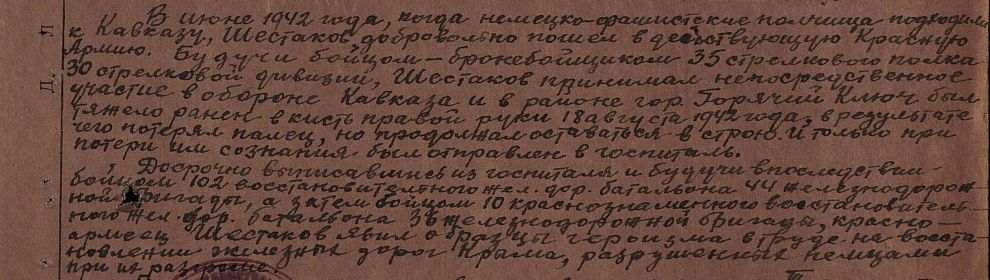 В июне 1942 года, когда немецко-фашистские полчища подходили
к Кавказу, Шестаков добровольно пошел в действующую Красную
Армию. Будучи бойцом — бронебойщиком 35 стрелкового полка
30 стрелковой дивизии, Шестаков принимал непосредственное
участие в обороне Кавказа и в районе гор. Горячий Ключ был
тяжело ранен в кисть правой руки 18 августа 1942 года, в результате
чего потерял палец, но продолжал оставаться в строю. И только при
потери им сознания был отправлен в госпиталь.
Досрочно выписавшись из госпиталя и будучи впоследствии
бойцом 102 восстановительного жел. дор. батальона 44 железнодорож-
ной бригады, а затем бойцом 10 краснознаменного восстановитель-
ного жел. дор. батальона 36 железнодорожной бригады, красно-
армеец Шестаков явил образцы героизма в труде на восста-
новлении железных дорог Крыма, разрушенных немцами
при их разгроме.